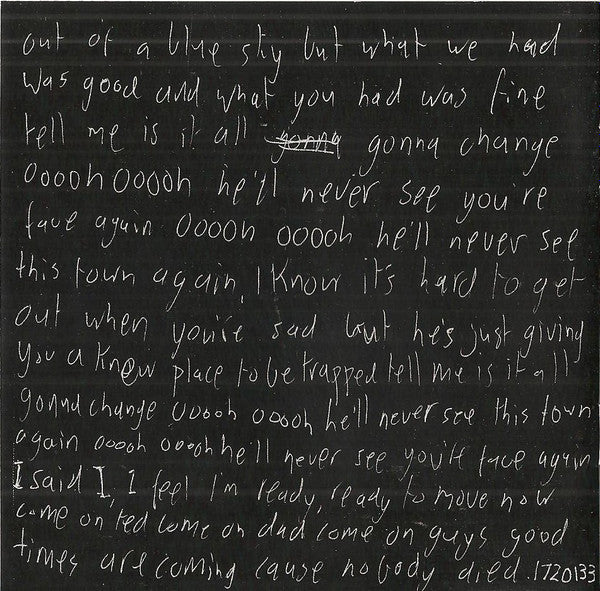 out of a blue sky but what we had
was good and what you had was fine
tell me is it all gonna gonna change
OooohOoooh he'll never see you're
face again Ooooh ooooh he'll never see
this town again, I know it's hard to get
out when you're sad but he's just giving
you a knew place to be trapped tell me is it all
gonna change Ooooh ooooh he'll never see this town
again ooooh ooooh he'll never see you're face again
I said I, I feel I'm ready, ready to move now
come on ted come on dad come on guys good
times are coming cause nobody died. 1720133